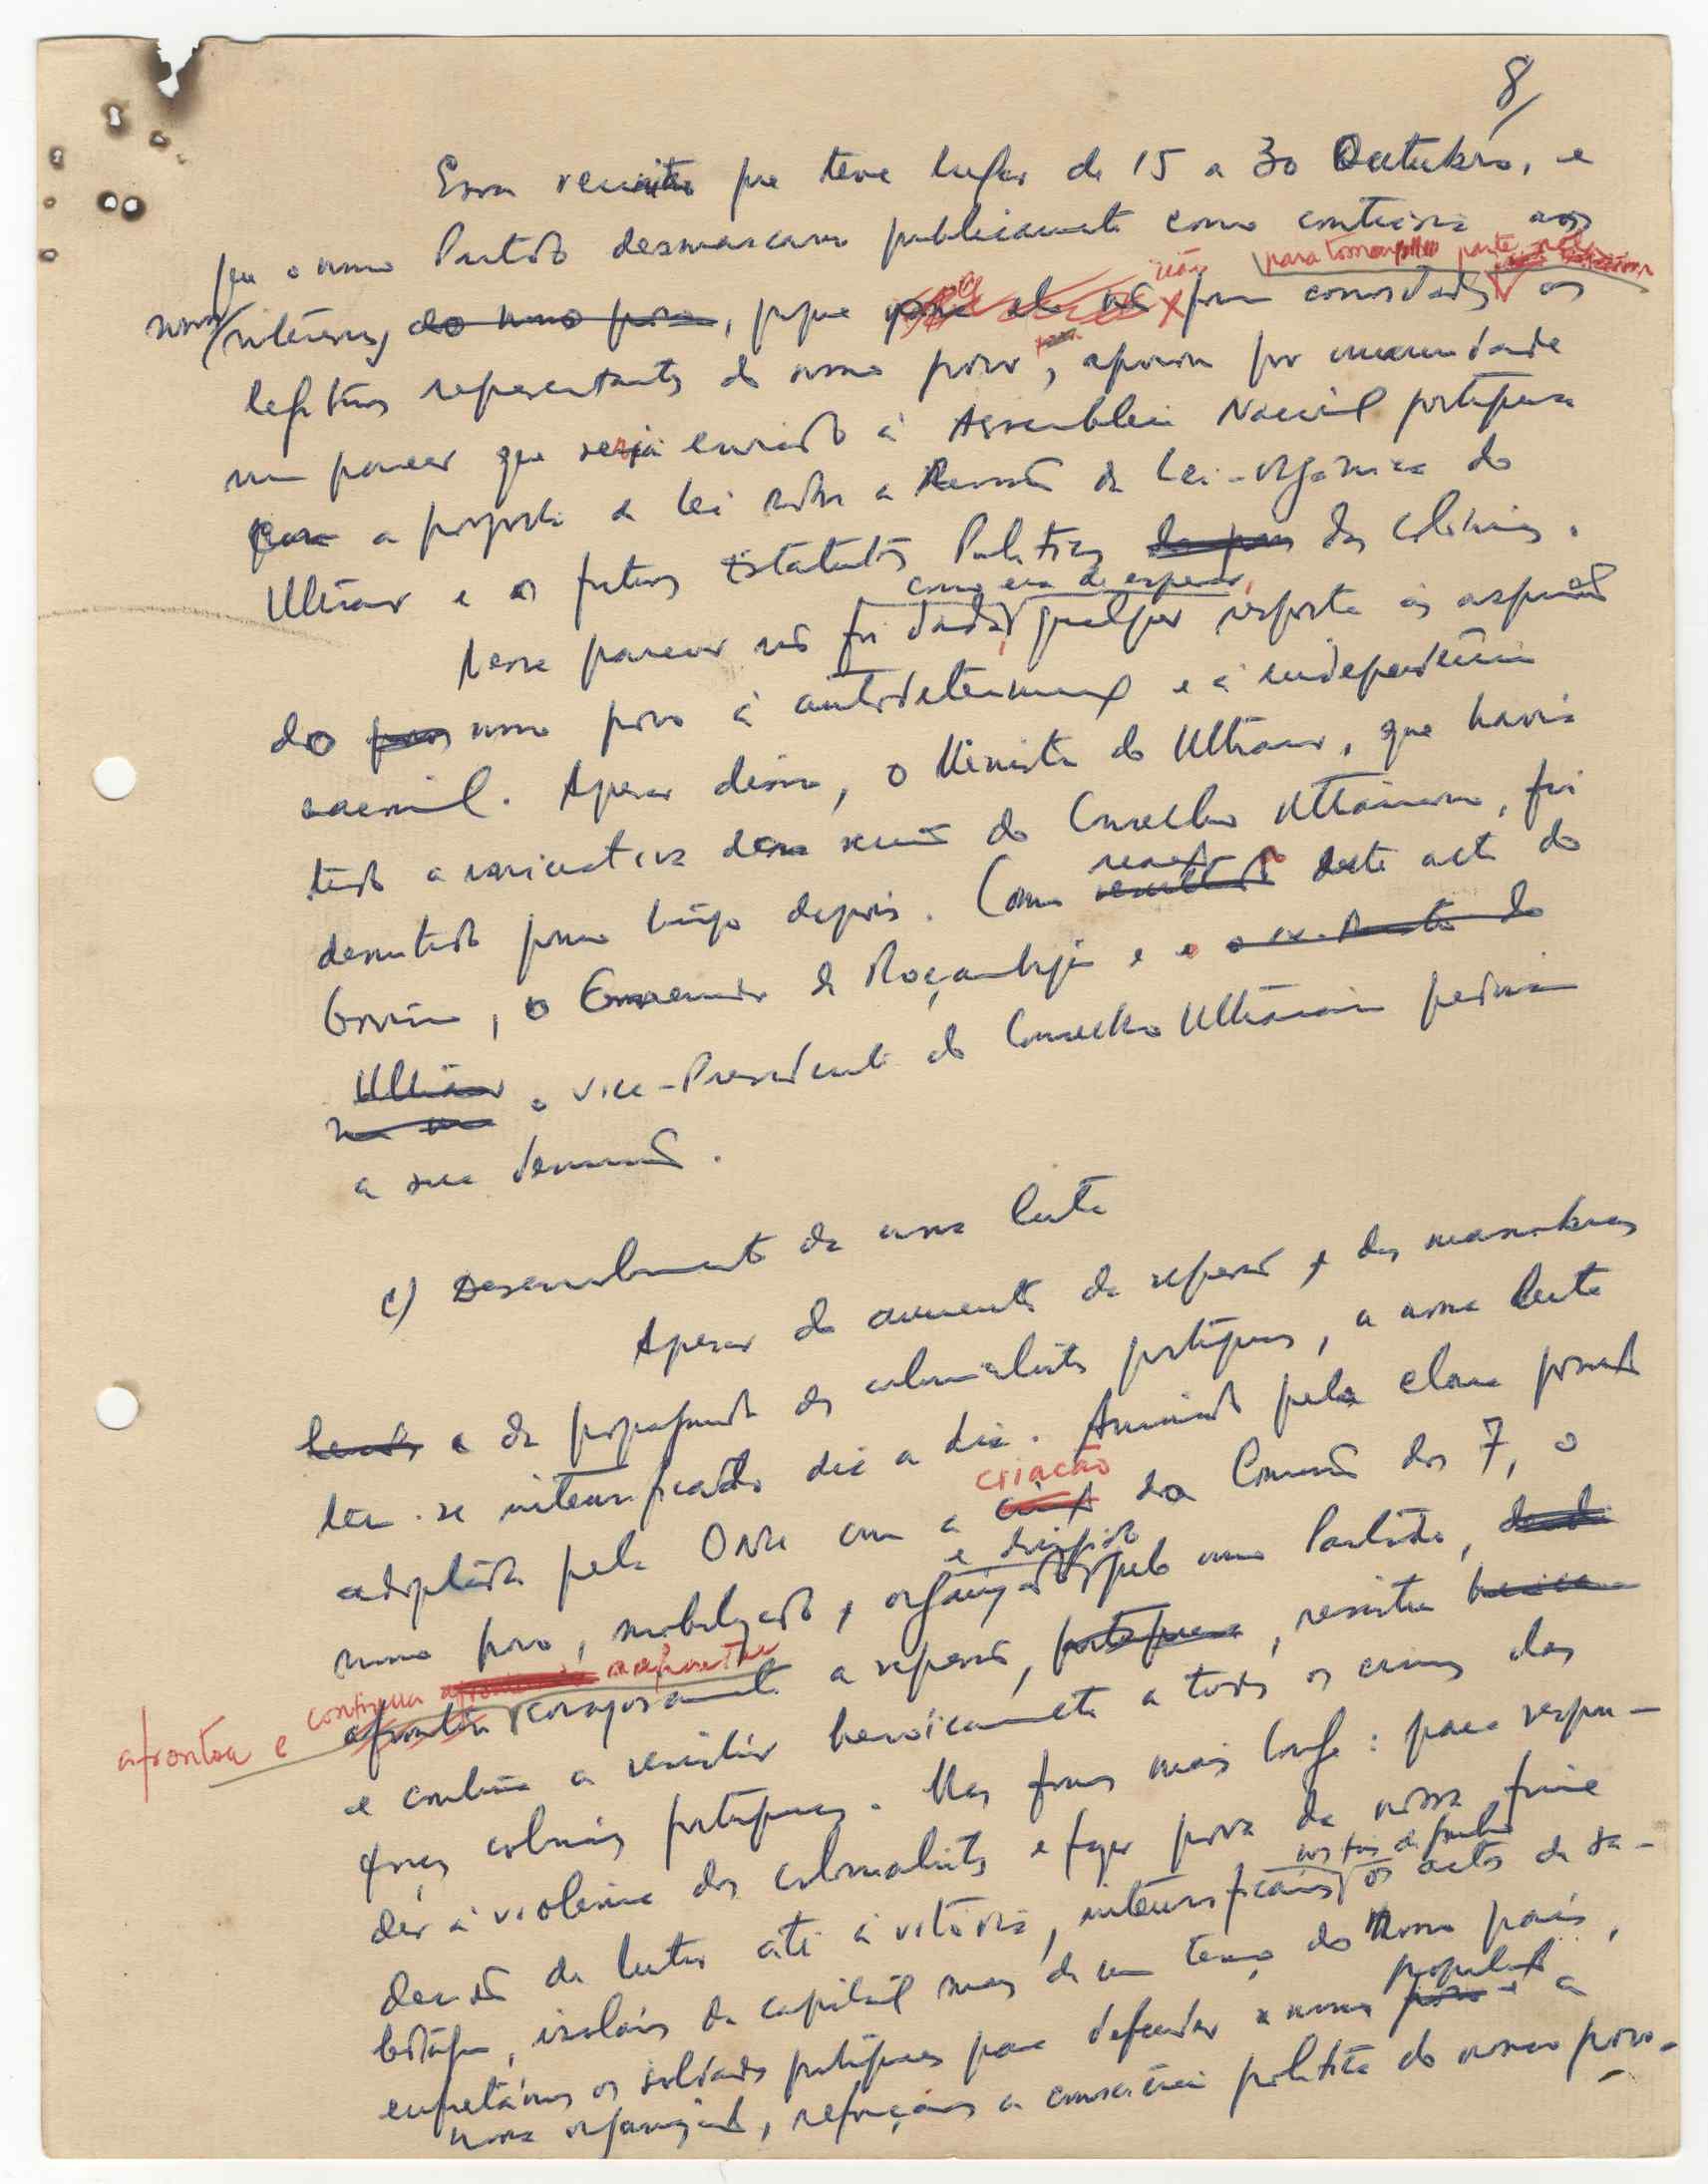 8/
Essa reunião que teve lugar de 15 a 30 Outubro, e
que o nosso Partido desmascarou publicamente como contrária aos
para tomarem parte nela
nossos interesses do nosso povo, porque não foram convidados os
legítimos representantes do nosso povo, aprovou por unanimidade
um parecer que seria enviado à Assembleia Nacional portuguesa
para a proposta de lei sobre a Revisão da Lei-orgânica do
Ultramar e os futuros Estatutos Políticos das colónias.
como era de esperar,
Nesse parecer não foi dada qualquer resposta às aspirações
do nosso povo à autodeterminação e à independência
nacional. Apesar disso, o Ministro do Ultramar, que havia
tido a iniciativa dessa reunião do Conselho Ultramarino, foi
demitido pouco tempo depois. Como reacção
resultado deste acto do
Governo, o Governador de Moçambique e o ex-Ministro do
Ultramar o vice-Presidente do Conselho Ultramarino pediram
a sua demissão.
c) Desenvolvimento da nossa luta
Apesar do aumento da repressão, das manobras
e da propaganda dos colonialistas portugueses, a nossa luta
tem-se intensificado dia a dia. Animado pela clara posição
criação
adoptada pela ONU com a da Comissão dos 7, o
e dirigido
nosso povo, mobilizado, organizado pelo nosso Partido,
afrontou e continua a afrontar
corajosamente a repressão, portuguesa, resistiu
e continua a resistir heroicamente a todos os crimes das
forças coloniais portuguesas. Mas fomos mais longe: para respon-
der à violência dos colonialistas e fazer prova da nossa firme
decisão de lutar até à vitória, intensificámos os actos de sa-
botagem, isolámos da capital mais de um terço do nosso país,
população
enfrentámos os soldados portugueses para defender a nossa povo e a
nossa organização, reforçámos a consciência política do nosso povo.